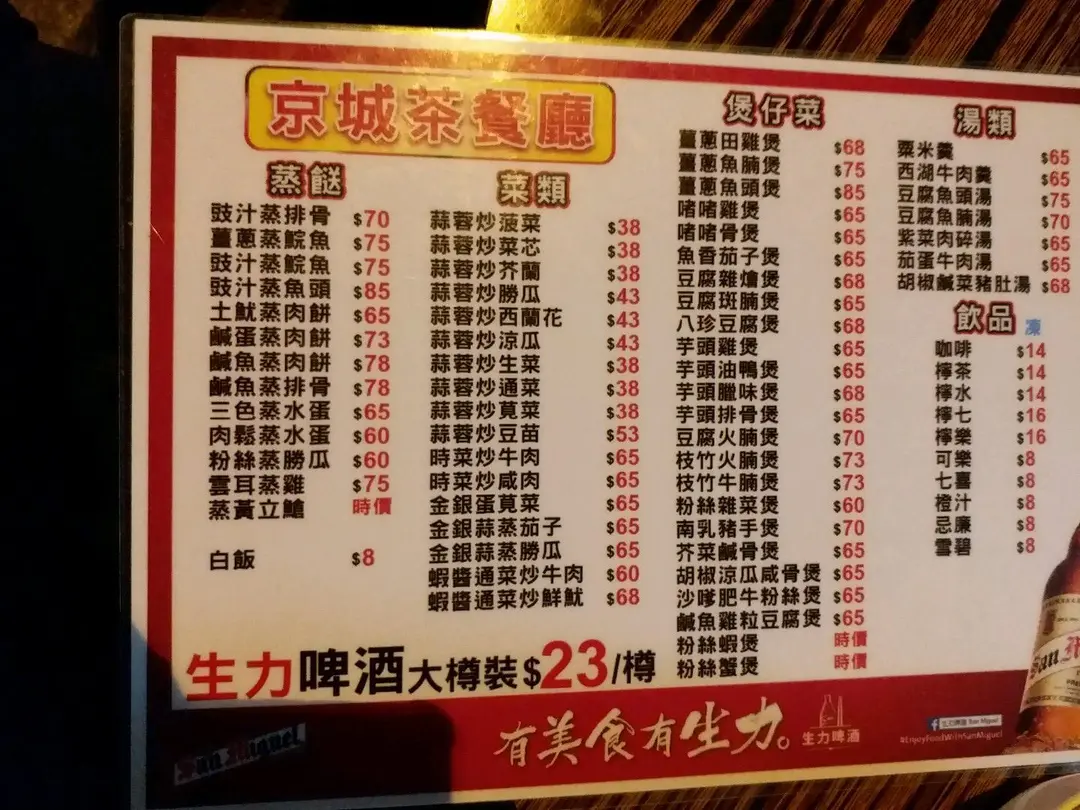 京城茶餐廳
蒸餸
豉汁蒸排骨 $70
薑蔥蒸鯇魚 $75
豉汁蒸鯇魚 $75
豉汁蒸魚頭 $85
土魷蒸肉餅 $65
鹹蛋蒸肉餅 $73
鹹魚蒸肉餅 $78
鹹魚蒸排骨 $78
三色蒸水蛋 $65
肉鬆蒸水蛋 $60
粉絲蒸勝瓜 $60
雲耳蒸雞 $75
蒸黃立鯧 時價
白飯 $8
菜類
蒜蓉炒菠菜 $38
蒜蓉炒菜芯 $38
蒜蓉炒芥蘭 $38
蒜蓉炒勝瓜 $43
蒜蓉炒西蘭花 $43
蒜蓉炒涼瓜 $43
蒜蓉炒生菜 $38
蒜蓉炒通菜 $38
蒜蓉炒莧菜 $38
蒜蓉炒豆苗 $53
時菜炒牛肉 $65
時菜炒咸肉 $65
金銀蛋莧菜 $65
金銀蒜蒸茄子 $65
金銀蒜蒸勝瓜 $65
蝦醬通菜炒牛肉 $60
蝦醬通菜炒鮮魷 $68
煲仔菜
薑蔥田雞煲 $68
薑蔥魚腩煲 $75
薑蔥魚頭煲 $85
啫啫雞煲 $65
啫啫骨煲 $65
魚香茄子煲 $65
豆腐雜燴煲 $68
豆腐斑腩煲 $65
八珍豆腐煲 $68
芋頭雞煲 $65
芋頭油鴨煲 $65
芋頭臘味煲 $68
芋頭排骨煲 $65
豆腐火腩煲 $70
枝竹火腩煲 $73
枝竹牛腩煲 $73
粉絲雜菜煲 $60
南乳豬手煲 $70
芥菜鹹骨煲 $65
胡椒涼瓜咸骨煲 $65
沙嗲肥牛粉絲煲 $65
鹹魚雞粒豆腐煲 $65
粉絲蝦煲 時價
粉絲蟹煲 時價
湯類
粟米羹 $65
西湖牛肉羹 $65
豆腐魚頭湯 $75
豆腐魚腩湯 $70
紫菜肉碎湯 $65
茄蛋牛肉湯 $65
胡椒鹹菜豬肚湯 $68
飲品 凍
咖啡 $14
檸茶 $14
檸水 $14
檸七 $16
檸樂 $16
可樂 $8
七喜 $8
橙汁 $8
忌廉 $8
雪碧 $8
生力啤酒大樽裝$23/樽
San Miguel
有美食有生力。
生力啤酒
生力啤酒 San Miguel
#EnjoyFoodWithSanMiguel